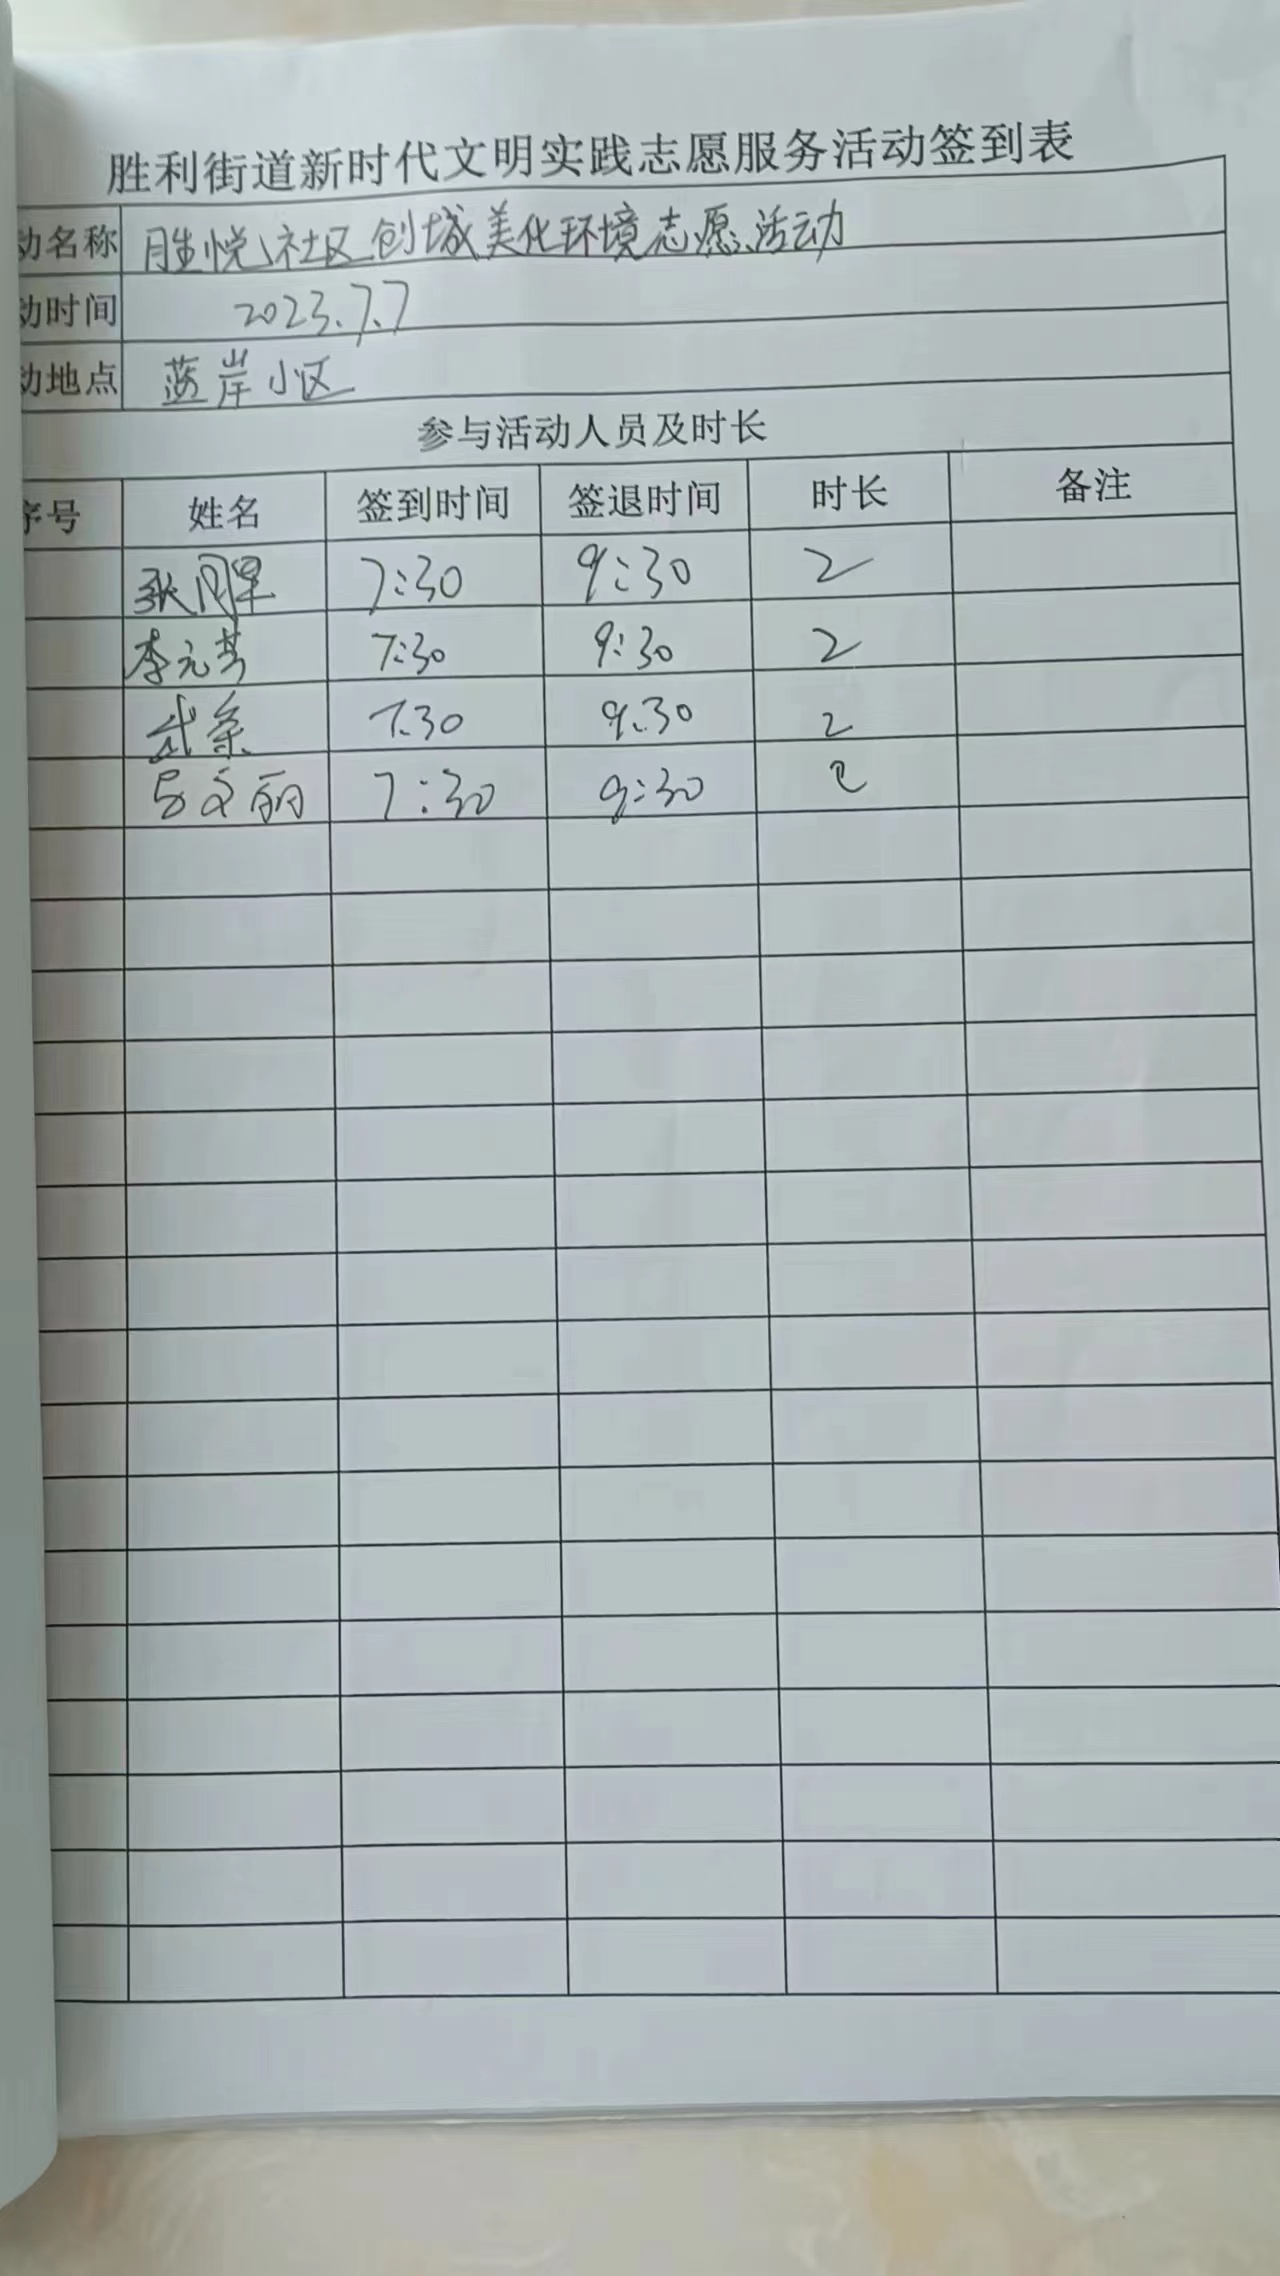 胜利街道新时代文明实践志愿服务活动签到表
动名称 胜悦社区创城美化环境志愿活动
动时间 2023.7.7
动地点 蓝岸小区
参与活动人员及时长
序号 姓名 签到时间 签退时间 时长 备注
7:30 9:30 2
李元芳 7:30 9:30 2
武 7.30 9.30 2
文丽 7:30 9:30 2